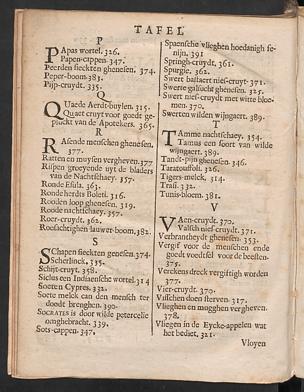 TAFEL
P
PApas wortel. 326.
Papen-cappen. 347.
Peerden sieckten ghenesen. 374.
Peper-boom. 383.
Pijn-cruydt. 335.
Q
QUaede Aerdt-buylen. 315.
Quaet cruyt voor goedt ge-
pluckt van de Apotekers. 365.
R
RAsende menschen ghenesen.
377.
Ratten en muysen vergheven. 377.
Rispen groeyende uyt de bladers
van de Nachtschaey. 357.
Ronde Esula. 363.
Ronde herdts Boleti. 316.
Rooden loop ghenesen. 319.
Roode nachtschaey. 357.
Roer-cruydt. 362.
Rootachtighen lauwer-boom. 382.
S
SChapen sieckten genesen. 374.
Scherlinck. 335.
Schijt-cruyt. 358.
Siclus een Indiaensche wortel. 314
Soeten Cypres. 332.
Soete melck can den mensch ter
doodt brenghen. 390.
SOCRATES is door wilde petercelie
omghebracht. 339.
Sots-cappen. 347.
Spaensche vlieghen hoedanigh se-
nijn. 391
Springh-cruydt. 361.
Spurgie. 362.
Swert bastaert niesf-cruyt. 371.
Swerte galsucht ghenesen. 325.
Swert niesf-cruydt met witte bloe-
men. 370.
Swerten wilden wijngaert. 389.
T
TAmme nachtschaey. 354.
Tamus een soort van wilde
wijngaert. 389.
Tandt-pijn ghenesen. 346.
Taratouffoli. 326.
Tigers-melck. 314.
Trasi. 332.
Tunis-bloem. 381.
V
VAen-cruydt. 370.
Valsch nief-cruydt. 371.
Verbrandtheydt ghenesen. 353.
Vergif voor de menschen ende
goedt voedtsel voor de beesten.
375.
Verekens dreck vergiftigh worden
377.
Vier-cruydt. 370.
Visschen doen sterven. 317.
Vlieghen en mugghen vergheven.
378.
Vliegen in de Eycke-appelen wat
het bediet. 321.
Vloyen